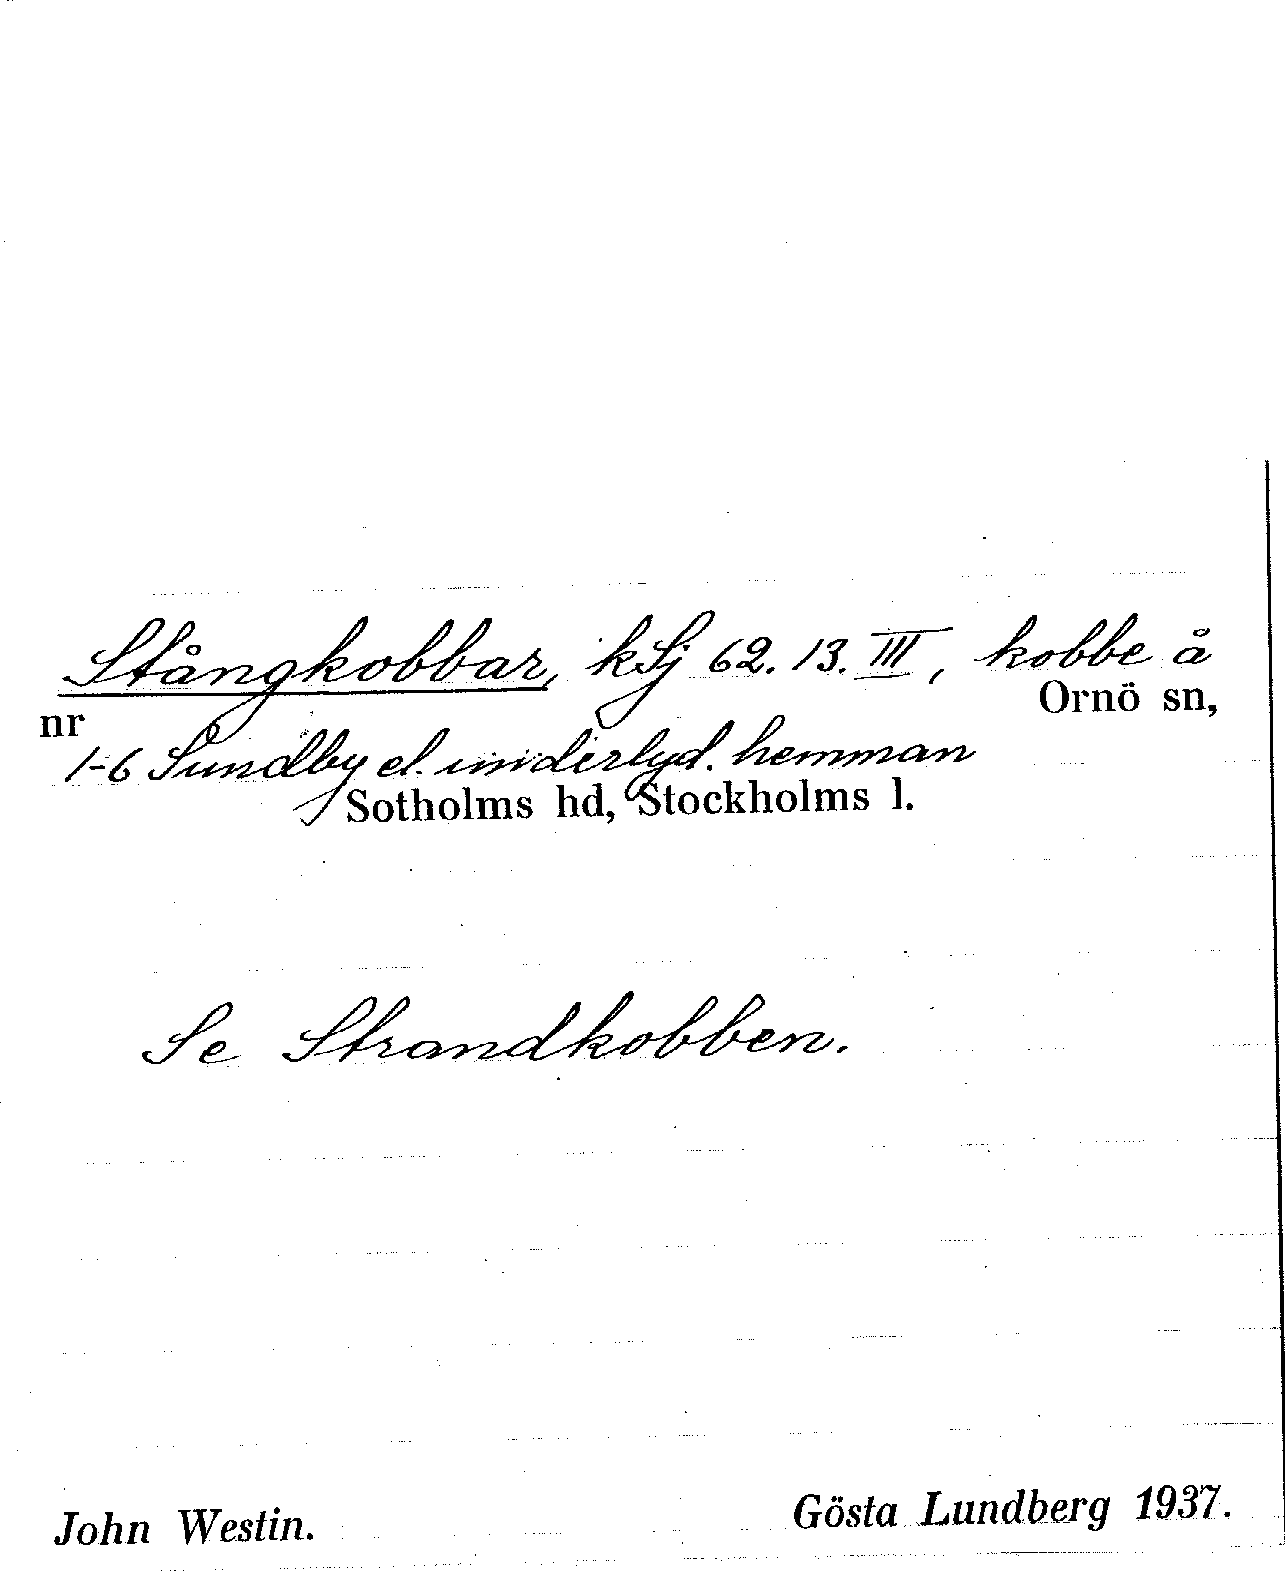 Stångkobbar, kSj 62. 13. III, kobbe å
Ornö sn,
nr
1-6 Sundby el. underlyd. hemman
Sotholms hd, Stockholms l.
Se Strandkobben.
John Westin.
Gösta Lundberg 1937.